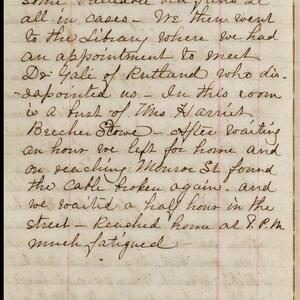 some valuable old
all in cases - We then went
to the Library where we had
an appointment to meet
Dr Gale of Rutland who dis-
appointed us - In this room
is a bust of Mrs Harriet
Beecher Stowe - After waiting
an hour we left for home and
on reaching Monroe St found
the Cable broken again. and
we waited a half hour in the
street - Reached home at 7. P.M
much fatigued -